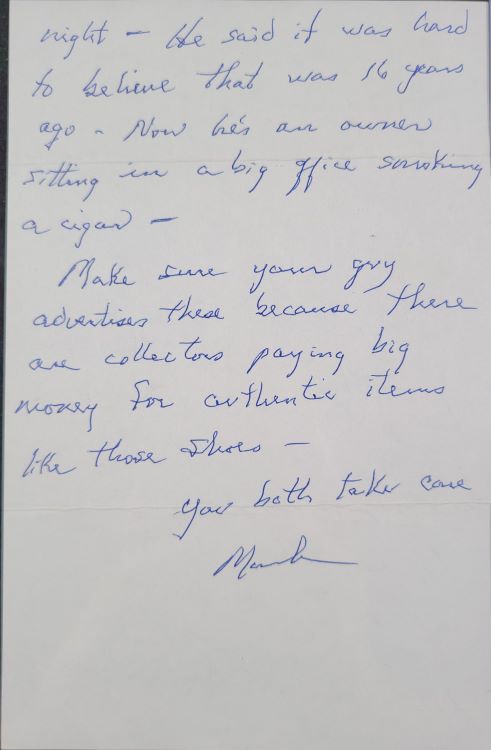 night – He said it was hard
to believe that was 16 years
ago – Now he's an owner
sitting in a big office smoking
a cigar –
Make sure your guy
advertises these because there
are collectors paying big
money for authentic items
like those shoes –
You both take care
Mark